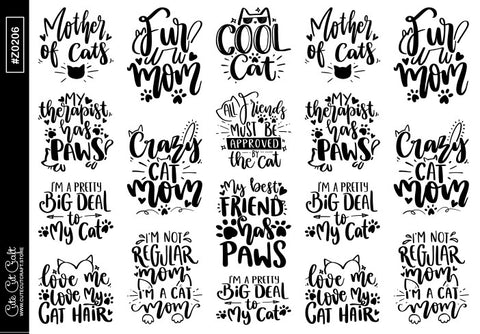 #Z0206
Cute Cut Craft
WWW.CUTECUTCRAFT.STORE
Mother
of Cats
MY
therapist
has
PAWS
I'M A PRETTY
BIG DEAL
to
My Cat
love me,
love My
CAT HAIR
Fur
Mom
Crazy
CAT
MOM
I'M NOT
REGULAR
mom
I'M A CAT
MOM
COOL
Cat
All Friends
MUST BE
APPROVED
BY
the Cat
My best
FRIEND
has
PAWS
I'M A PRETTY
BIG DEAL
to
My Cat
Mother
of Cats
MY
therapist
has
PAWS
I'M A PRETTY
BIG DEAL
to
My Cat
love me,
love My
CAT HAIR
Fur
Mom
Crazy
CAT
MOM
I'M NOT
REGULAR
mom
I'M A CAT
MOM